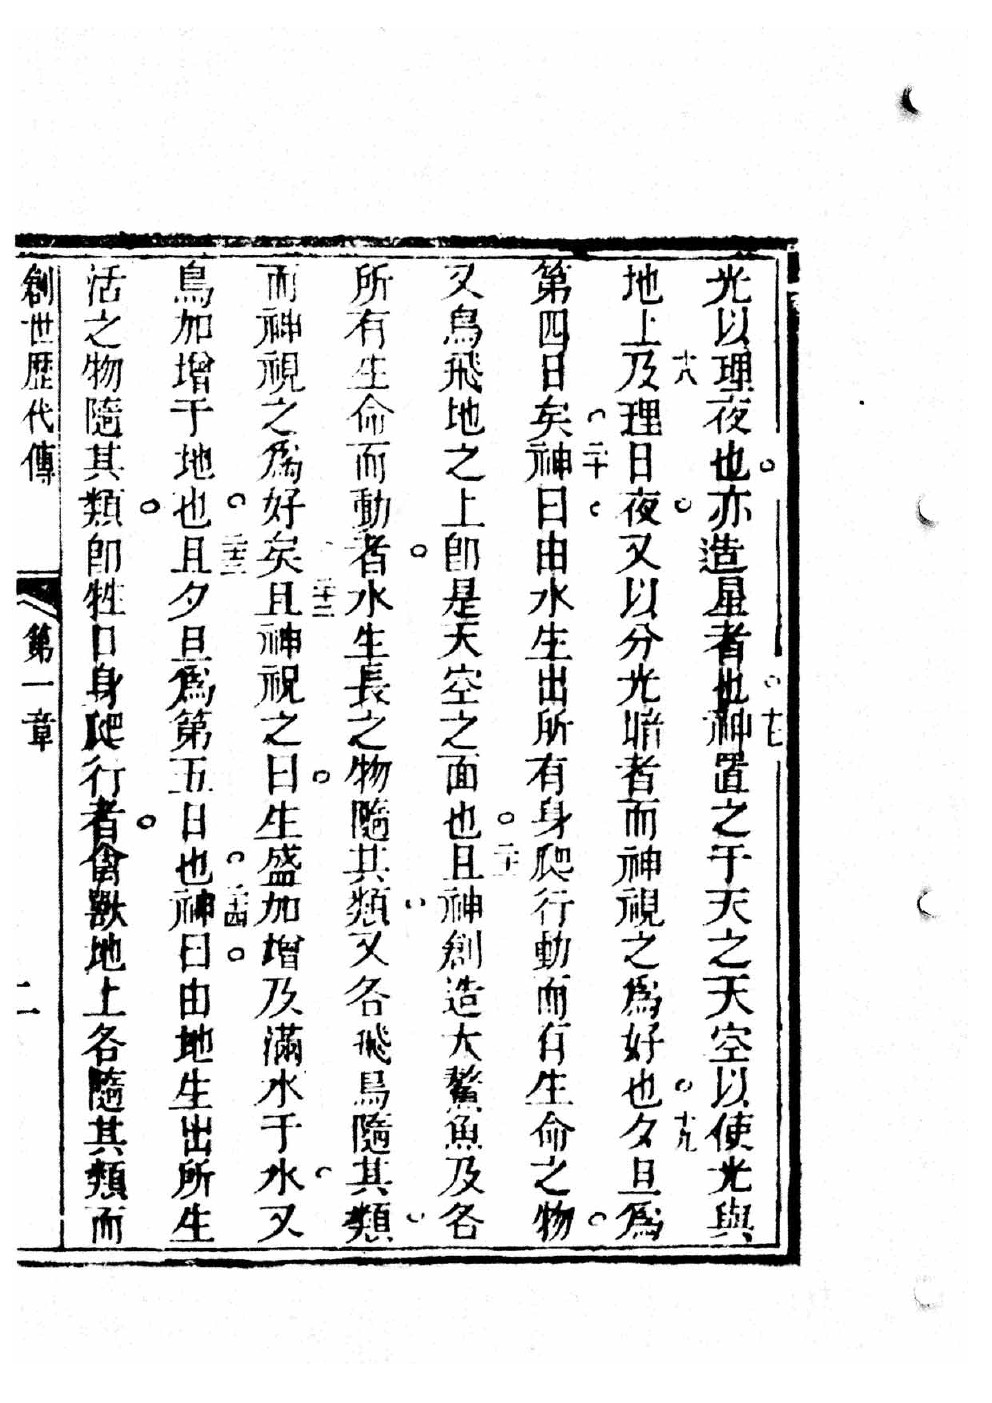 光以理夜也。亦造星者也。十七神置之于天之天空以使光與
地上及十八理日夜。又以分光暗者而神視之爲好也。十九夕旦爲
第四日矣。二十神曰。由水生出所有身爬行動而有生命之物。
又鳥飛地之上。卽是天空之面也。二十一且神創造大鰲魚及各
所有生命而動者水生長之物隨其類。又各飛鳥隨其類。
而神視之爲好矣。二十二且神祝之曰。生盛加增及滿水于水。又
鳥加增于地也。二十三且夕旦爲第五日也。二十四神曰。由地生出所生
活之物隨其類。卽牲口身爬行者。禽獸地上各隨其類而
創世歷代傳
第一章
二